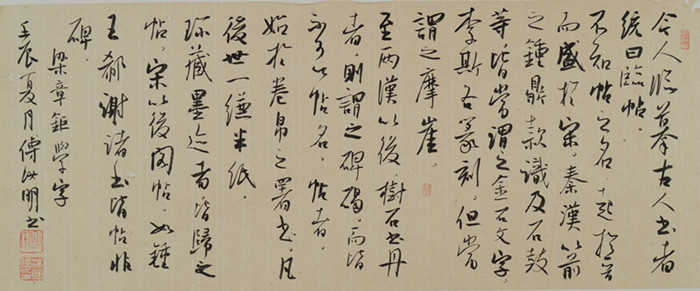 今人临摹古人書者
統曰臨帖。
不知帖之名,起於晉
而盛於宋。秦漢以前
之鍾鼎款識及石鼓
等皆當謂之金石文字。
李斯各篆刻,但當
謂之摩崖。
至兩漢以後,樹石書丹
者,則謂之碑碣,而皆
不可以帖名。帖者,
始於卷帛之署書,凡
後世一縑半紙,
珍藏墨迹者皆歸之
帖。宋以後閣帖,如鍾
王郗謝諸書皆帖非
碑。
梁章鉅學字
壬辰夏月傅明書